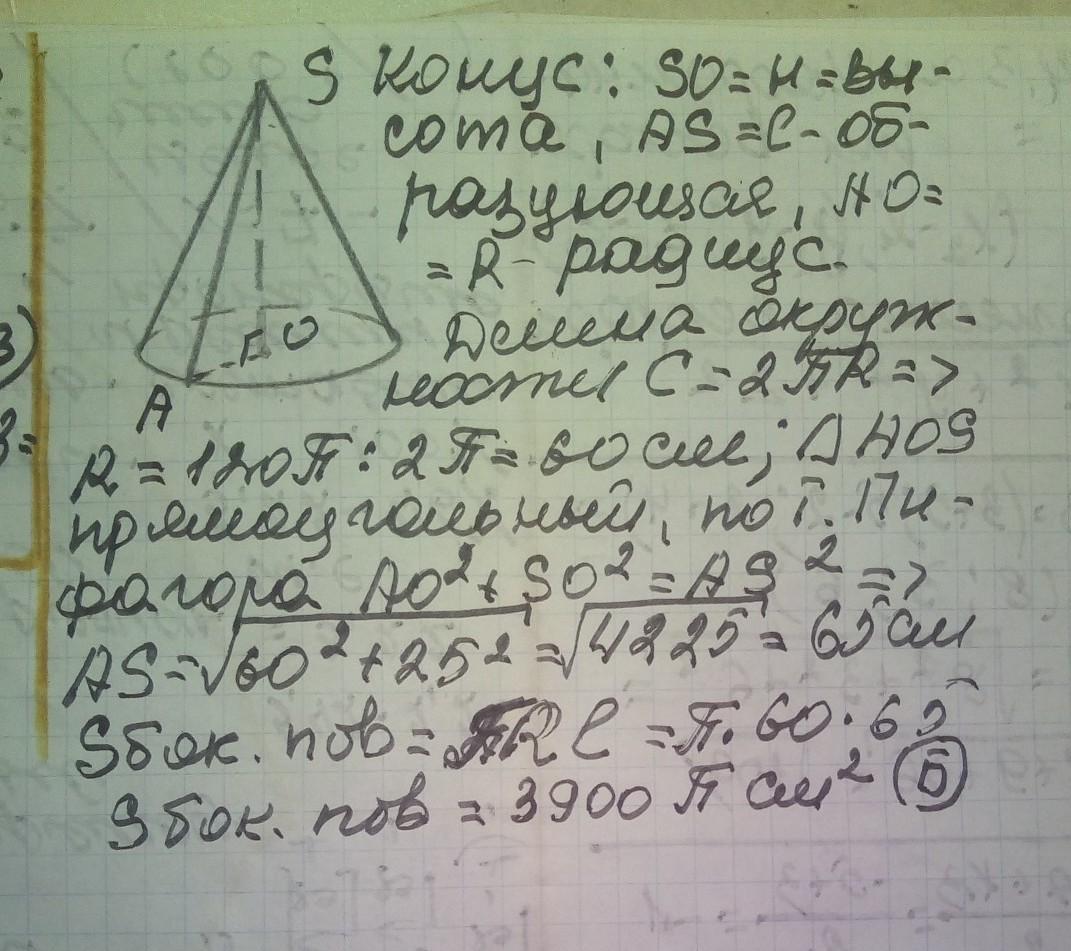 S Конус: SO = H = вы-
сота, AS = ℓ - об-
разующая, AO =
= R - радиус.
Длина окруж-
ности C = 2πR =>
O
A
R = 120π : 2π = 60 см; △ AOS
прямоугольный, по т. Пи-
фагора AO² + SO² = AS² =>
AS = √60² + 25² = √4225 = 65 см
Sбок. пов = πRℓ = π · 60 · 65
Sбок. пов = 3900 π см² Б
3)
3=